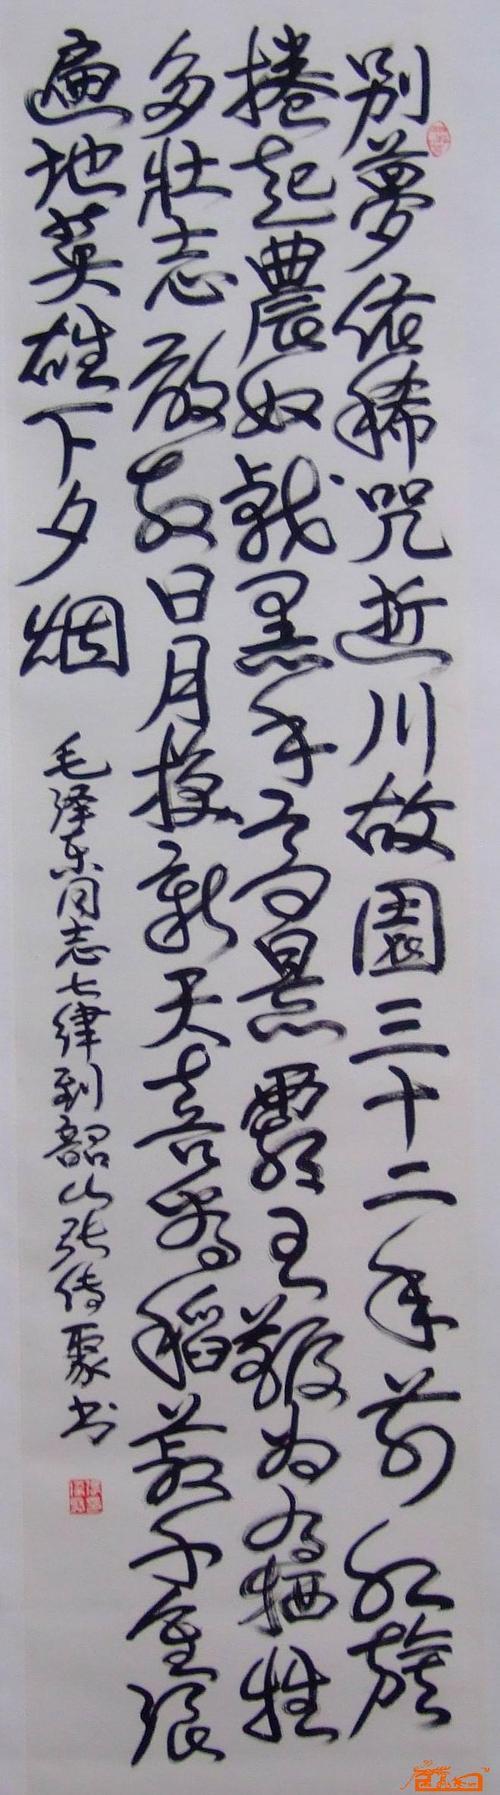 別夢依稀咒逝川故園三十二年前红旗
捲起農奴戟黑手高懸霸主鞭为有牺牲
多壯志敢教日月换新天喜看稻菽千重浪
遍地英雄下夕烟
毛泽东同志七律到韶山张传聚书